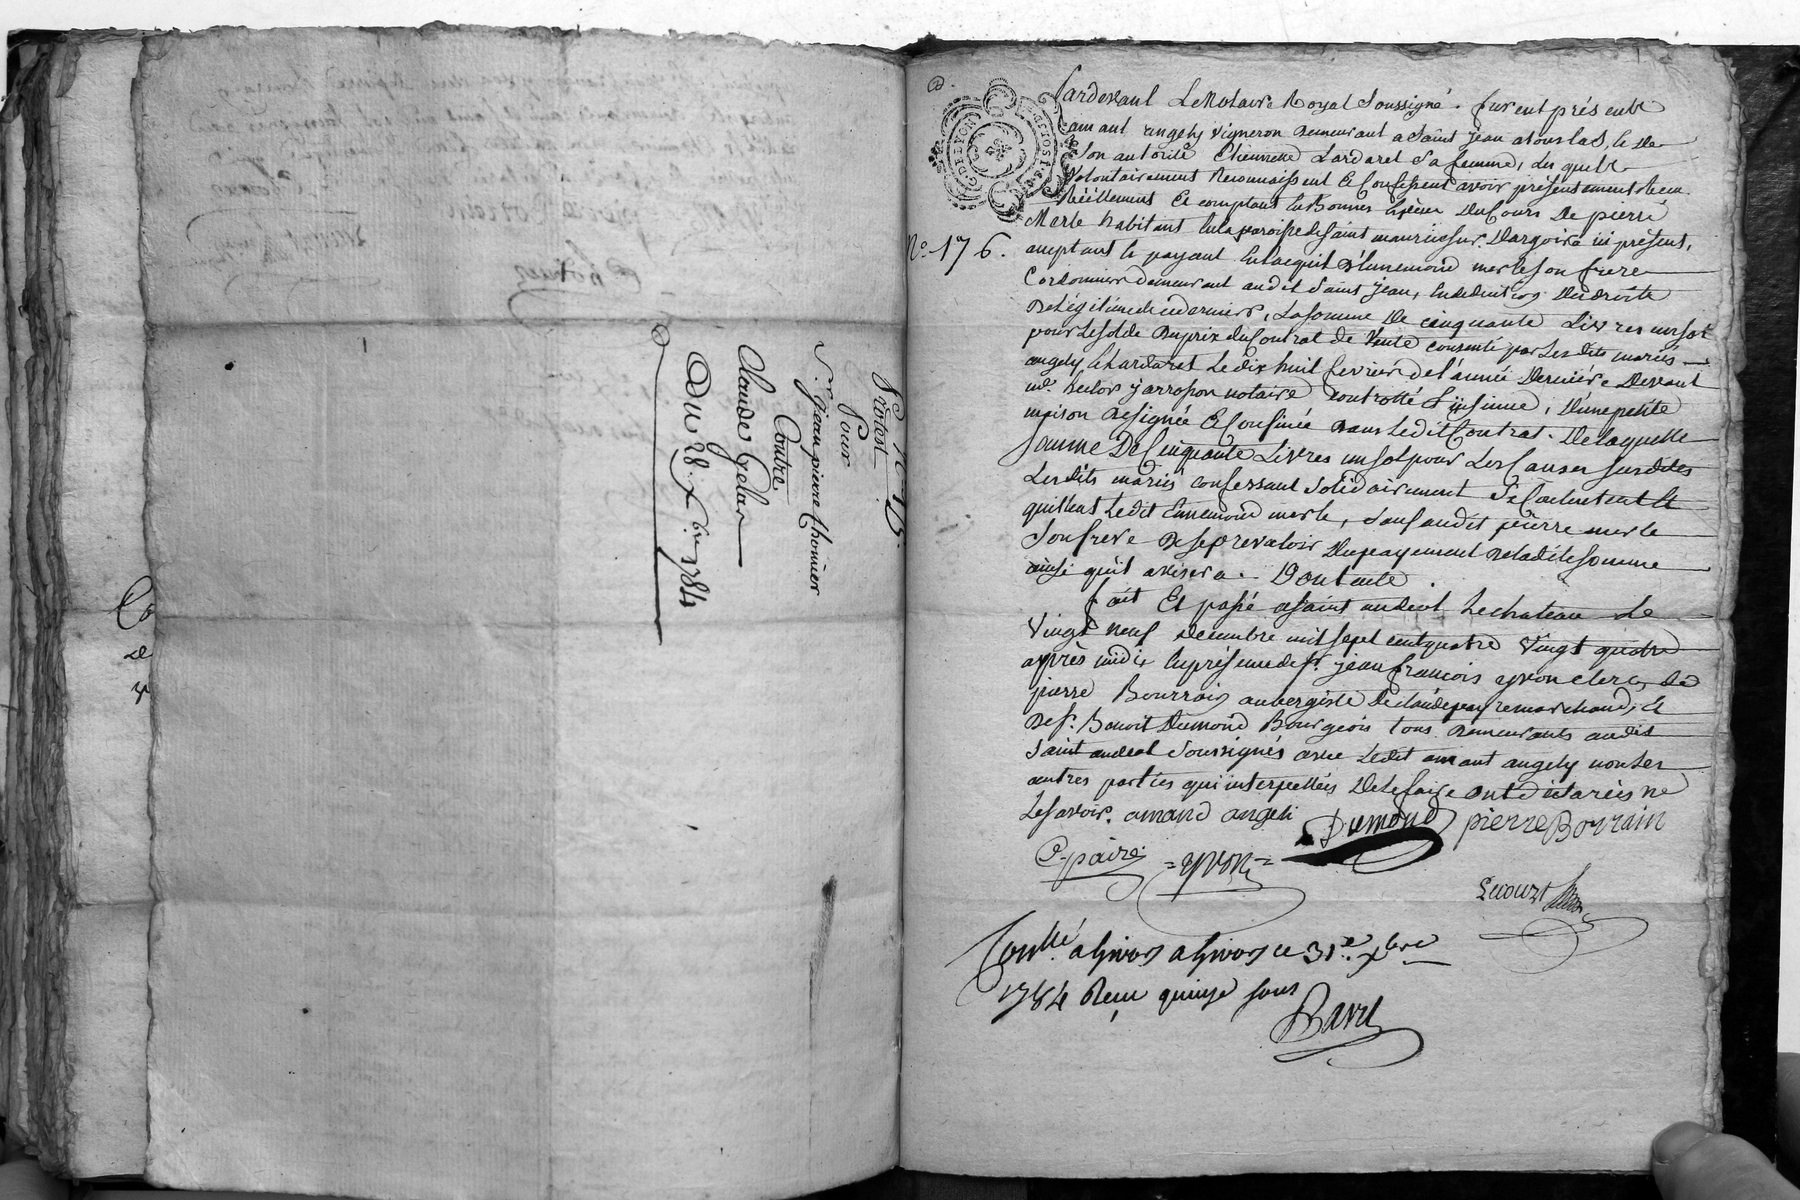 P. N. D.
Protest
Pour
Sr. jean pierre thonnier
Contre
Claude Gelas
Du 28. Xbre 1784
G. DE LYON
N.o 176.
Pardevant Le Notaire Royal Soussigné. furent présents
amant angely Vigneron demeurant a Saint jean atouslas, & de
Son autorité Etiennette Lardaret Sa femme, Lesquels
Volontairement Reconnaissent & Confessent avoir présentement Recu
Réellement Et comptant En Bonnes Espèces Du Cours De pierre
Merle habitant En la paroisse de Saint maurice Sur Dargoire ici présent,
aceptant & payant En l'acquit d'Ennemond merle son frere
Cordonnier demeurant audit Saint jean, En deduction Des droits
De Légitime de ce dernier, La somme De cinquante Livres un sol
pour Le solde Du prix du Contrat de Vente consenti par Les dits mariés
angely & Lardaret Le dix huit fevrier de l'année Derniére Devant
me. hector jarrosson notaire Controllé & insinué, D'une petite
maison Designée & Confinée dans Le dit Contrat. De laquelle
somme De Cinquante Livres un sol pour Les Causes susdites
Les dits mariés confessant Solidairement Se Contentent &
quittent Le dit Ennemond merle, sauf audit pierre merle
Son frere De se prevaloir Du payement De la dite somme
ainsi qu'il avisera. Dont acte.
fait Et passé a Saint andeol Le chateau Le
Vingt neuf decembre mil sept cent quatre Vingt quatre
après midi En présence de sr. jean françois yvon clerc, de
pierre Bourrain aubergiste De Claude paire marchand, &
De sr. Benoit Dumond Bourgeois tous demeurants audit
Saint andeol Soussignés avec Le dit amant angely non Les
autres parties qui interpellées De Le faire ont déclarées ne
Le savoir. amand angeli
Dumond pierre Borrain
C. paire =yvon=
Lecourt
Conllé a Givors a Givors ce 31.e Xbre
1784 Reçu quinze sous
Bavet